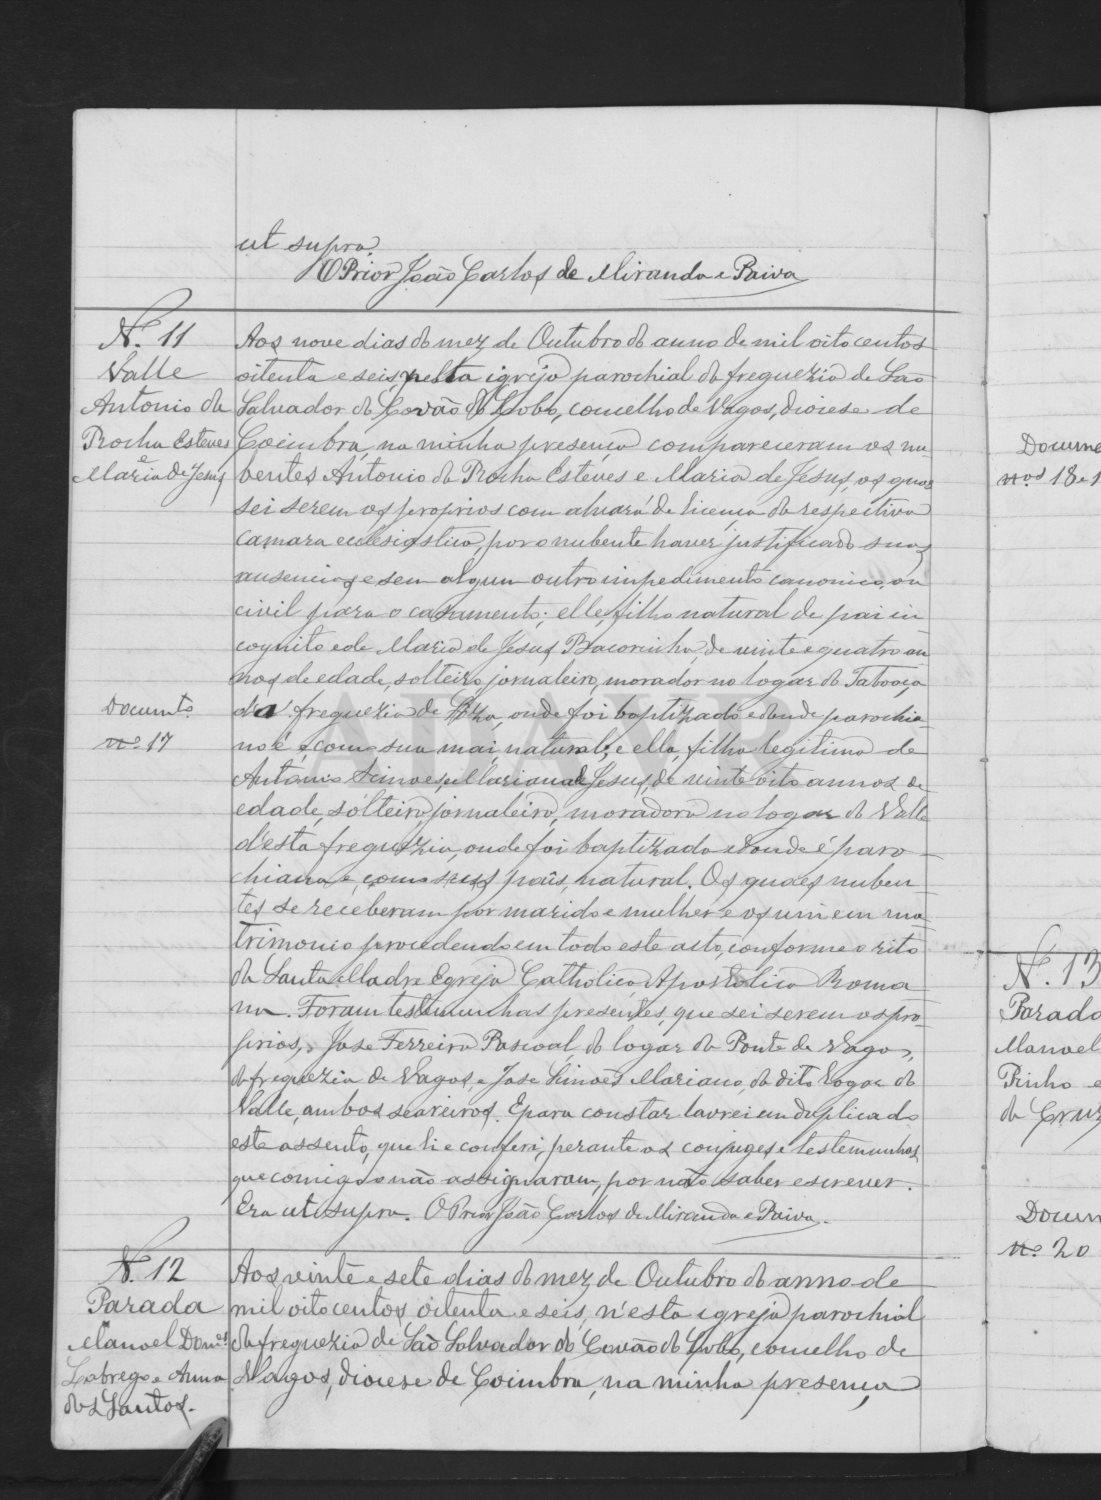 ut supra.
O Prior João Carlos de Miranda e Paiva
N.º 11
Valle
Antonio da
Rocha Esteves
e
Maria de Jesus
Documto
nº 17
Aos nove dias do mez de Outubro do anno de mil oito centos
oitenta e seis, nesta igreja parochial da freguezia de São
Salvador do Covão do Lobo, concelho de Vagos, diocese de
Coimbra, na minha presença compareceram os nu-
bentes Antonio da Rocha Esteves e Maria de Jesus, os quaes
sei serem os proprios com alvará de licença da respectiva
camara ecclesiastica, por o nubente haver justificado suas
ausencias, e sem algum outro impedimento canonico, ou
civil para o casamento; elle, filho natural de pai in-
cognito e de Maria de Jesus Bacorinha, de vinte e quatro an-
nos de edade, solteiro, jornaleiro, morador no logar da Taboaça
d'a freguezia de, onde foi baptizado e donde parochia-
no é, e com sua mai, natural; e ella, filha legitima de
Antonio Simoes, e Marianna de Jesus, de vinte oito annos de
edade, solteira, jornaleira, moradora no logar do Valle
d'esta freguezia, onde foi baptizada e donde é paro-
chiana e, com seus pais, natural. Os quaes nuben-
tes se receberam por marido e mulher e os uni em ma-
trimonio procedendo em todo este acto, conforme o rito
da Santa Madre Egreja Catholica, Apostolica Roma-
na. Foram testemunhas presentes, que sei serem os pro-
prios, Jose Ferreira Pascoal, do logar da Ponte de Vagos,
da freguezia de Vagos, e Jose Simoes Mariano, do dito logar do
Valle, ambos seareiros. E para constar lavrei em duplicado
este assento, que li e conferi, perante os conjuges e testemunhas
que comigo não assignaram, por não saber escrever.
Era ut supra. O Prior João Carlos de Miranda e Paiva.
N.º 12
Parada
Manoel Domes
Labrego e Anna
dos Santos.
Aos vinte e sete dias do mez de Outubro do anno de
mil oito centos oitenta e seis, n'esta igreja parochial
da freguezia de São Salvador do Covão do Lobo, concelho de
Vagos, diocese de Coimbra, na minha presença
Docume
nos 18 e 1
N.º 13
Parada
Manoel
Pinho e
da Cruz
Docum
nº 20
ADAVR